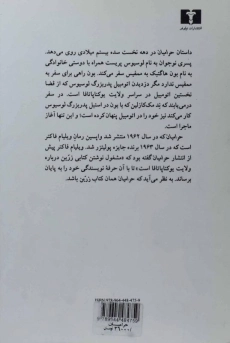 داستان حرامیان در دهه نخست سده بیستم میلادی روی می‌دهد.
پسری نوجوان به نام لوسیوس پریست همراه با دوستی خانوادگی
به نام بون هاگنبک به ممفیس سفر می‌کند. بون راهی برای سفر به
ممفیس ندارد مگر دزدیدن اتومبیل پدربزرگ لوسیوس که از قضا
نخستین اتومبیل در سراسر ولایت یوکناپاتافا است. در سفر
درمی‌یابند که ند مک‌کازلین که با بون در اصطبل پدربزرگ لوسیوس
کار می‌کند نیز خود را در اتومبیل پنهان کرده است؛ و این تنها آغاز
ماجرا است.
حرامیان که در سال ۱۹۶۲ منتشر شد واپسین رمان ویلیام فاکنر
است که در سال ۱۹۶۳ برنده جایزه پولیتزر شد. ویلیام فاکنر پیش
از انتشار حرامیان گفته بود که «مشغول نوشتن کتابی زرین درباره
ولایت یوکناپاتافا است» تا با آن حرفهٔ نویسندگی خود را به پایان
برساند. به نظر می‌آید که حرامیان همان کتاب زرین باشد.